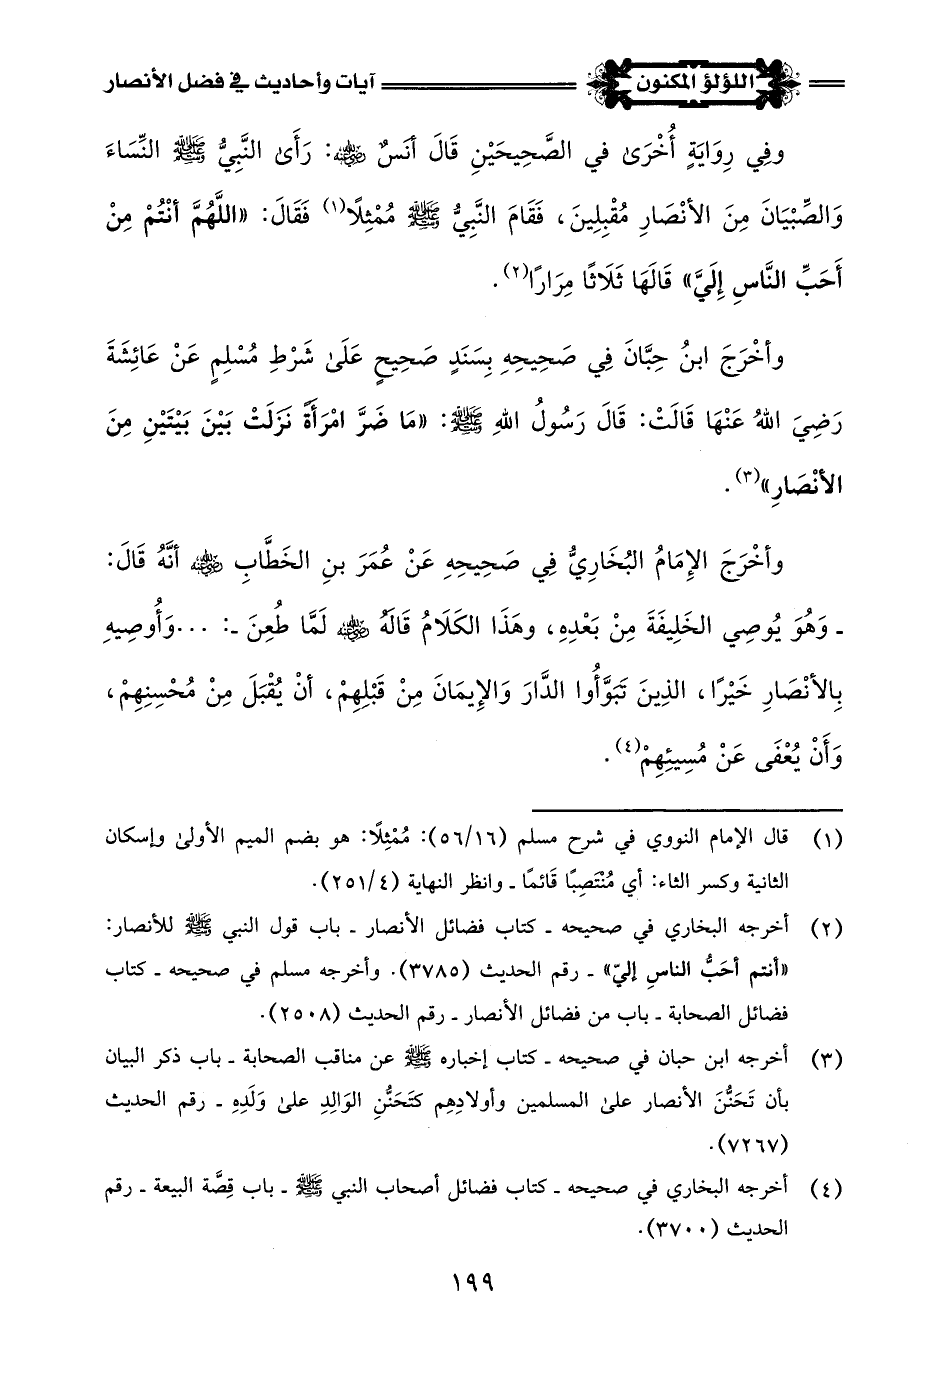 اللؤلؤ المكنون آيات وأحاديث في فضل الأنصار
وفِي رِوَايَةٍ أُخْرَىٰ في الصَّحِيحَيْنِ قَالَ أنَسٌ رضي الله عنه: رَأَىٰ النَّبِيُّ ﷺ النِّسَاءَ
وَالصِّبْيَانَ مِنَ الأنْصَارِ مُقْبِلِينَ، فَقَامَ النَّبِيُّ ﷺ مُمْثِلًا(١) فَقَالَ: «اللَّهُمَّ أنْتُمْ مِنْ
أَحَبِّ النَّاسِ إِلَيَّ» قَالَهَا ثَلَاثًا مِرَارًا(٢).
وأخْرَجَ ابنُ حِبَّانَ فِي صَحِيحِهِ بِسَنَدٍ صَحِيحٍ عَلَىٰ شَرْطِ مُسْلِمٍ عَنْ عَائِشَةَ
رَضِيَ اللهُ عَنْهَا قَالَتْ: قَالَ رَسُولُ اللهِ ﷺ: «مَا ضَرَّ امْرَأَةً نَزَلَتْ بَيْنَ بَيْتَيْنِ مِنَ
الأنْصَارِ»(٣).
وأخْرَجَ الإمَامُ البُخَارِيُّ فِي صَحِيحِهِ عَنْ عُمَرَ بنِ الخَطَّابِ رضي الله عنه أنَّهُ قَالَ:
ـ وَهُوَ يُوصِي الخَلِيفَةَ مِنْ بَعْدِهِ، وهَذَا الكَلَامُ قَالَهُ رضي الله عنه لَمَّا طُعِنَ ـ: ...وَأُوصِيهِ
بِالأنْصَارِ خَيْرًا، الذِينَ تَبَوَّأُوا الدَّارَ وَالإيمَانَ مِنْ قَبْلِهِمْ، أنْ يُقْبَلَ مِنْ مُحْسِنِهِمْ،
وَأَنْ يُعْفَى عَنْ مُسِيئِهِمْ(٤).
(١) قال الإمام النووي في شرح مسلم (٥٦/١٦): مُمْثِلًا: هو بضم الميم الأولىٰ وإسكان
الثانية وكسر الثاء: أي مُنْتَصِبًا قَائمًا ـ وانظر النهاية (٢٥١/٤).
(٢) أخرجه البخاري في صحيحه ـ كتاب فضائل الأنصار ـ باب قول النبي ﷺ للأنصار:
«أنتم أحَبُّ الناسِ إليّ» ـ رقم الحديث (٣٧٨٥). وأخرجه مسلم في صحيحه ـ كتاب
فضائل الصحابة ـ باب من فضائل الأنصار ـ رقم الحديث (٢٥٠٨).
(٣) أخرجه ابن حبان في صحيحه ـ كتاب إخباره ﷺ عن مناقب الصحابة ـ باب ذكر البيان
بأن تَحَنُّنَ الأنصار علىٰ المسلمين وأولادِهِم كتَحَنُّنِ الوَالِدِ علىٰ وَلَدِهِ ـ رقم الحديث
(٧٢٦٧).
(٤) أخرجه البخاري في صحيحه ـ كتاب فضائل أصحاب النبي ﷺ ـ باب قِصَّة البيعة ـ رقم
الحديث (٣٧٠٠).
١٩٩